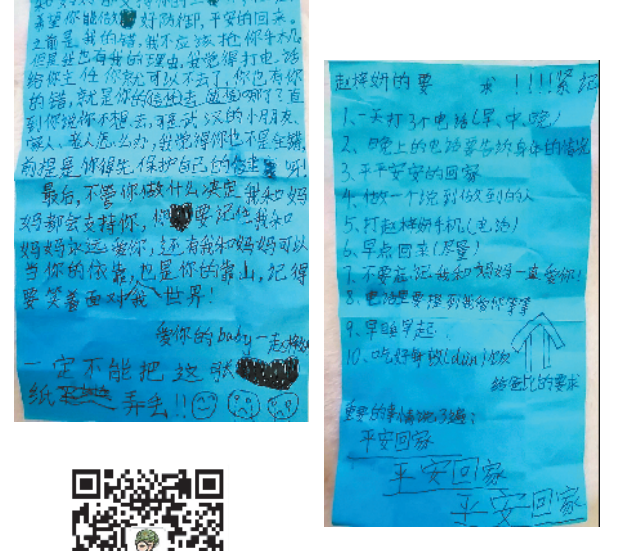 希望你能做好防御,平安的回来。
之前是我的错,我不应该抢你手机,
但是我也有我的理由,我觉得打电话
给你主任你就可以不去了,你也有你
的错,就是你的
到你说你不想去,可是武汉的小朋友、
病人、老人怎么办,我觉得你也不是全错,
前提是你得先保护自己的呀!
最后,不管你做什么决定我和妈
妈都会支持你,你要记住我和
妈妈永远爱你,还有我和妈妈可以
当你的依靠,也是你的靠山,记得
要笑着面对我世界!
爱你的baby—赵梓妍
一定不能把这张
纸弄丢!!
赵梓妍的要求!!!!紧记
1、一天打3个电话(早、中、晚)
2、晚上的电话要告诉身体的情况
3、平平安安的回家
4、做一个说到做到的人
5、打赵梓妍手机(电话)
6、早点回来(尽量!)
7、不要忘记我和妈妈一直爱你!
8、电话里要提到我给你等等
9、早睡早起!
10、吃好每顿(dùn)饭
给爸比的要求
重要的事情说3遍:
平安回家
平安回家
平安回家